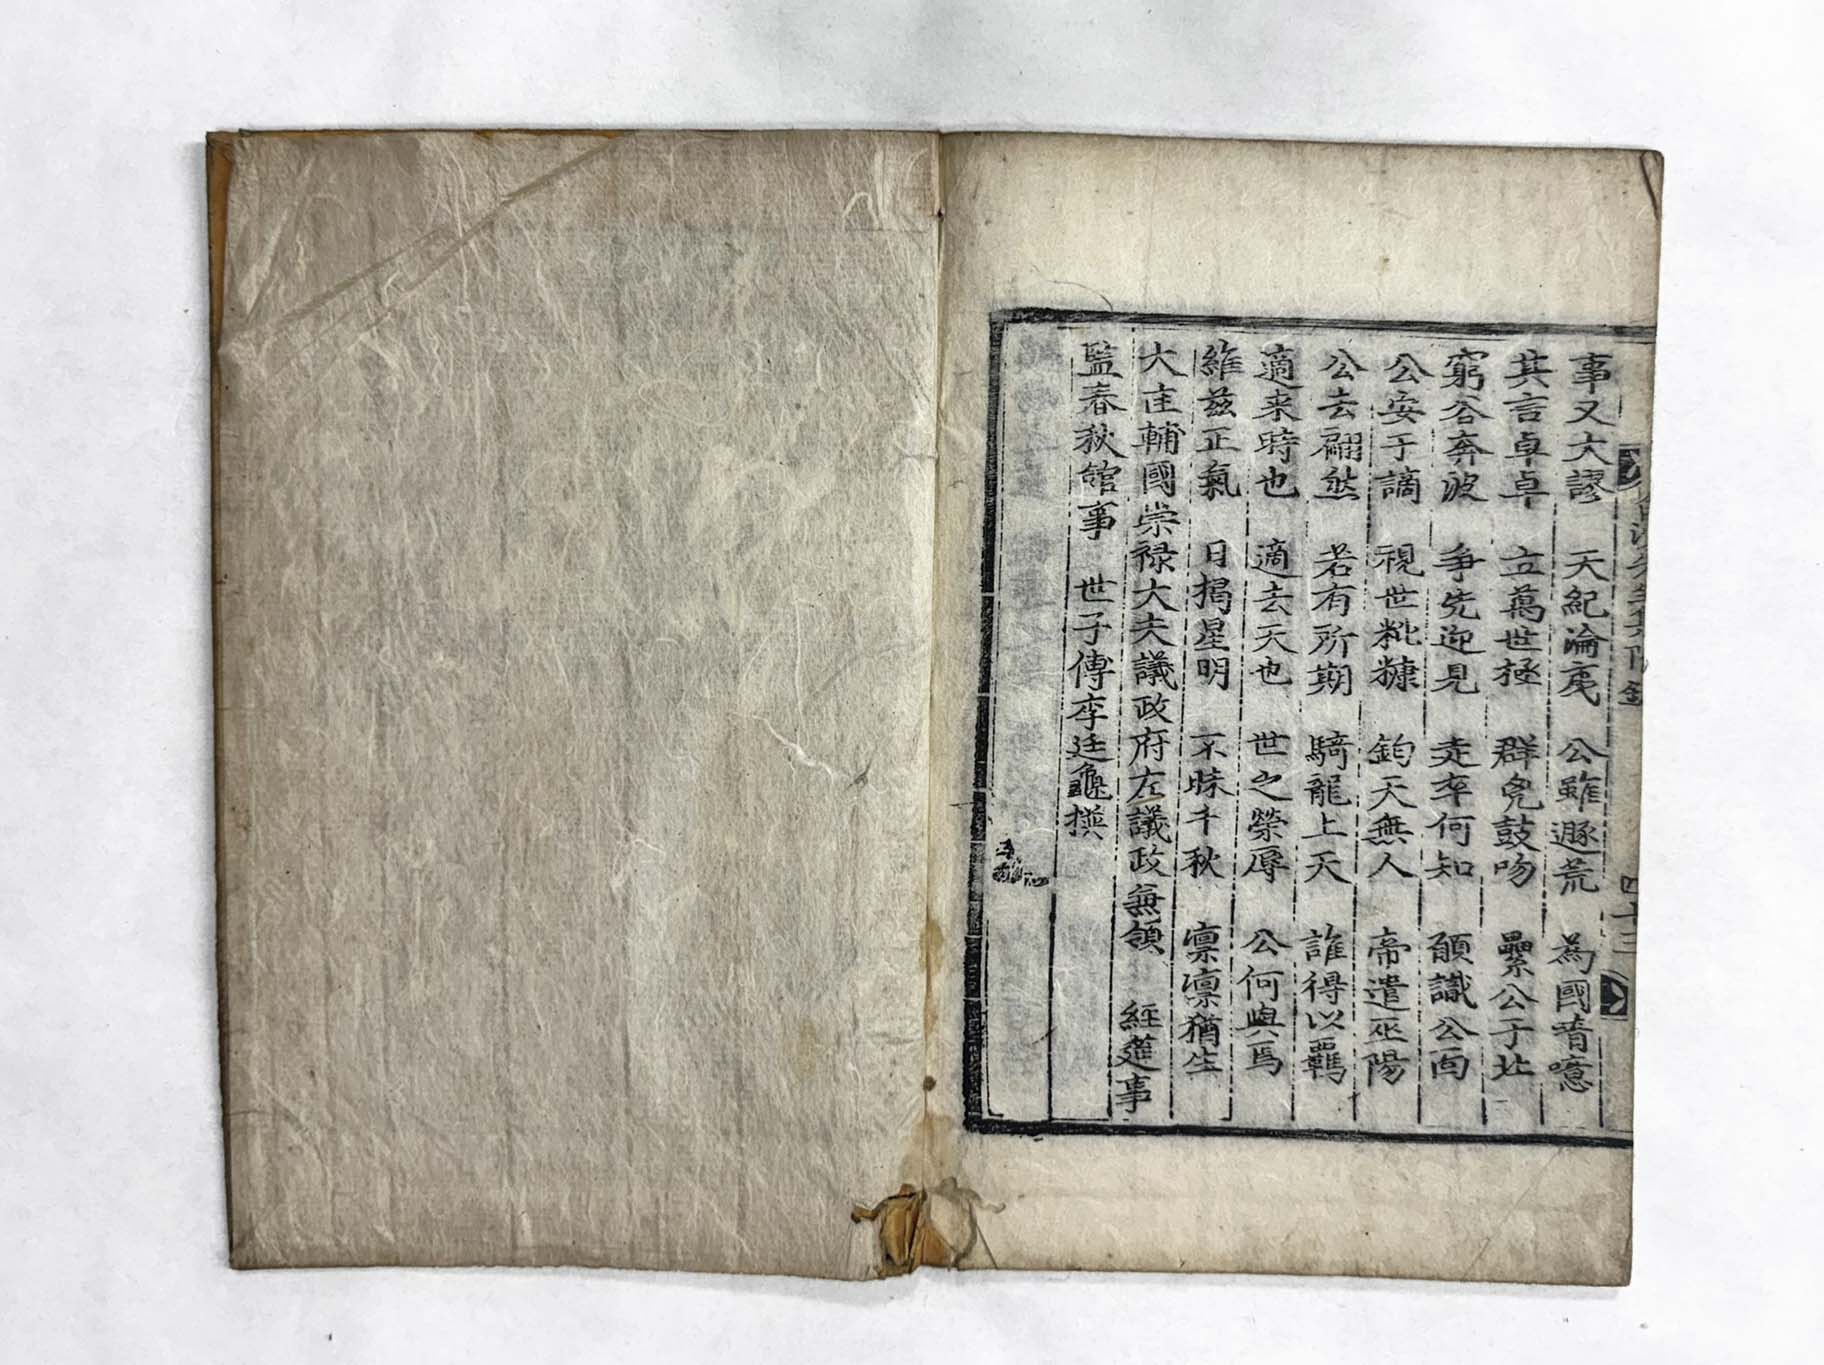 事又大謬 天紀淪夷 公雖遯荒 為國喑噫
其言卓卓 立萬世極 群兇鼓吻 纍公于北
窮谷奔波 爭先迎見 走卒何知 願識公面
公安于謫 視世粃糠 鈞天無人 帝遣巫陽
公去翩然 若有所期 騎龍上天 誰得以羈
適来時也 適去天也 世之榮辱 公何與焉
維茲正氣 日揭星明 不昧千秋 凛凛猶生
大匡輔國崇禄大夫議政府左議政兼領 經筵事
監春秋館事 世子傅李廷龜撰
四十三